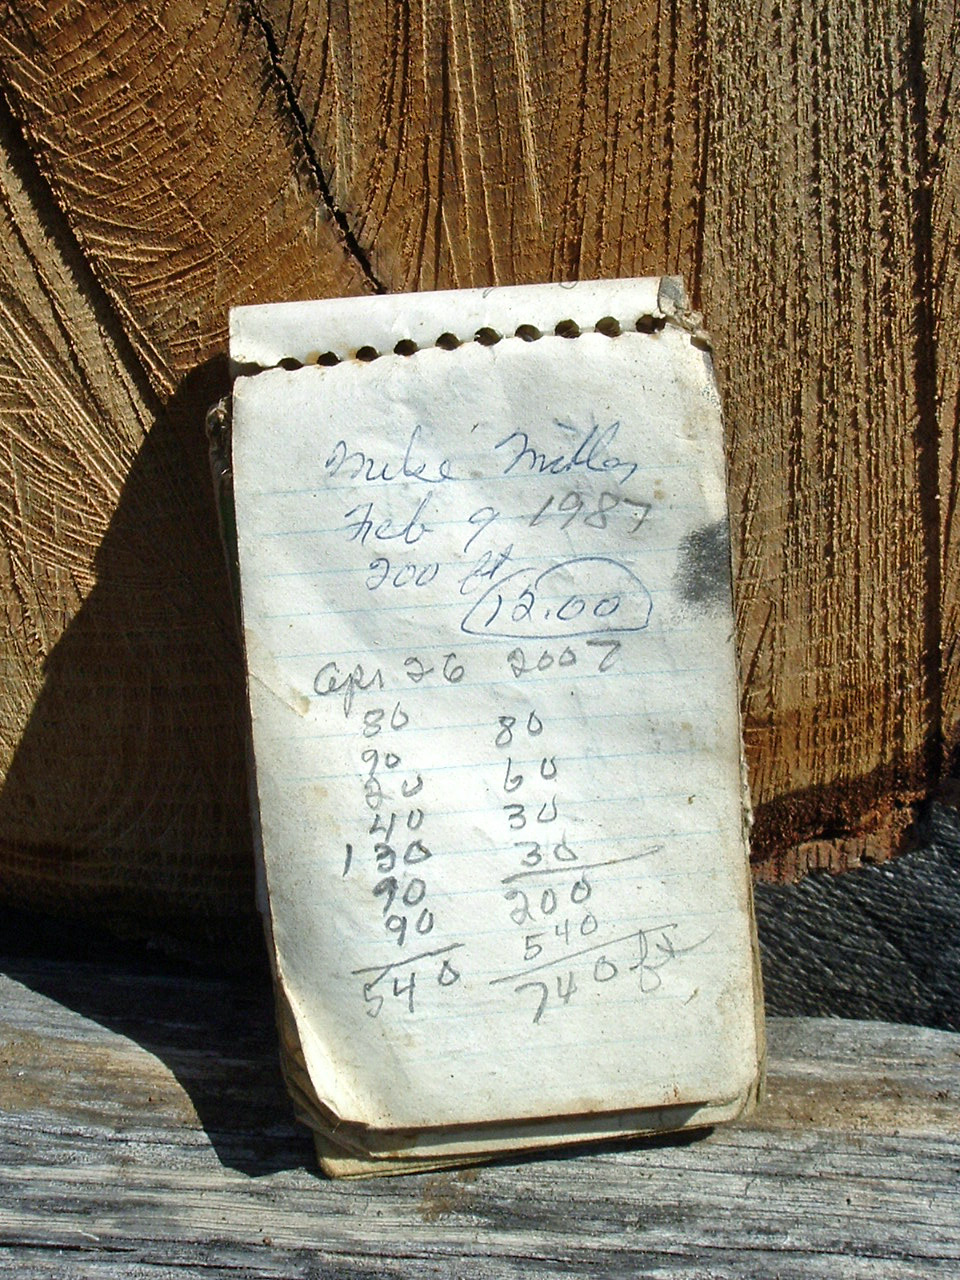 Mike
Feb 9 1987
200 ft
12.00
Apr 26 2007
80
90
20
40
130
90
90
540
80
60
30
30
200
540
740 ft